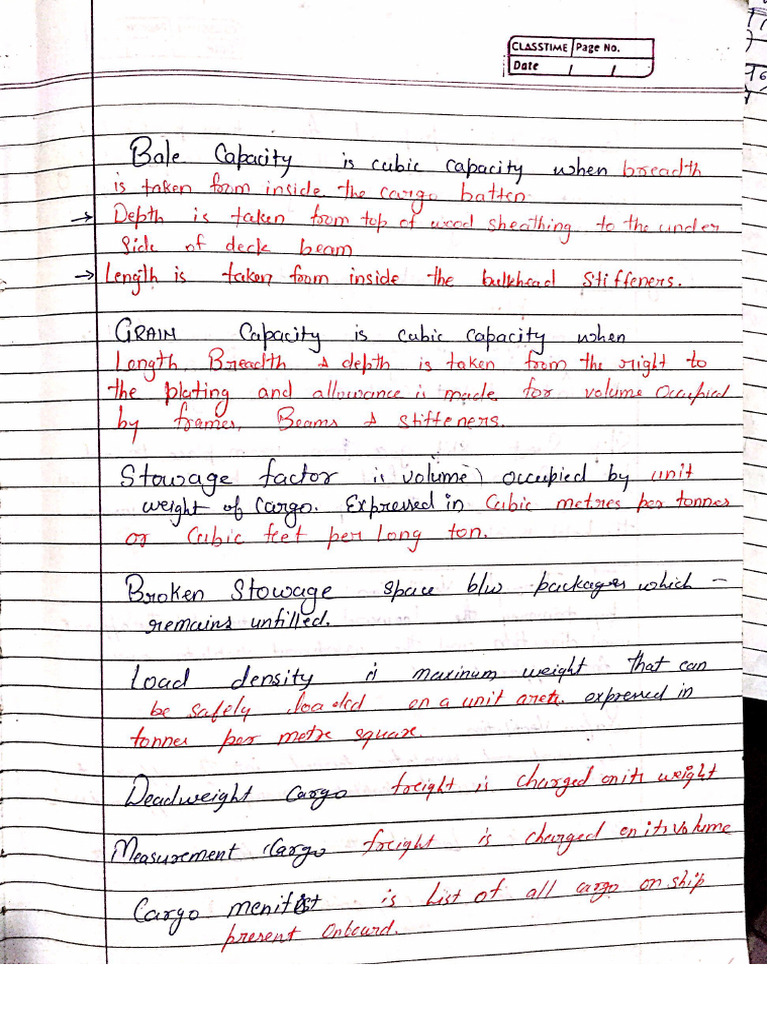 CLASSTIME Page No.
Date / /
Bale Capacity is cubic capacity when breadth
is taken from inside the cargo batten
→ Depth is taken from top of wood sheathing to the under
side of deck beam
→ Length is taken from inside the bulkhead stiffeners.
GRAIN Capacity is cubic capacity when
Length, Breadth & depth is taken from the right to
the plating and allowance is made for volume occupied
by frames, Beams & stiffeners.
Stowage factor is volume occupied by unit
weight of cargo. Expressed in Cubic metres per tonnes
or Cubic feet per Long ton.
Broken Stowage space b/w packages which -
remains unfilled.
Load density is maximum weight that can
be safely loaded on a unit area. expressed in
tonnes per metre square.
Deadweight Cargo freight is charged on its weight
Measurement Cargo freight is charged on its volume
Cargo menifist is List of all cargo on ship
present Onboard.